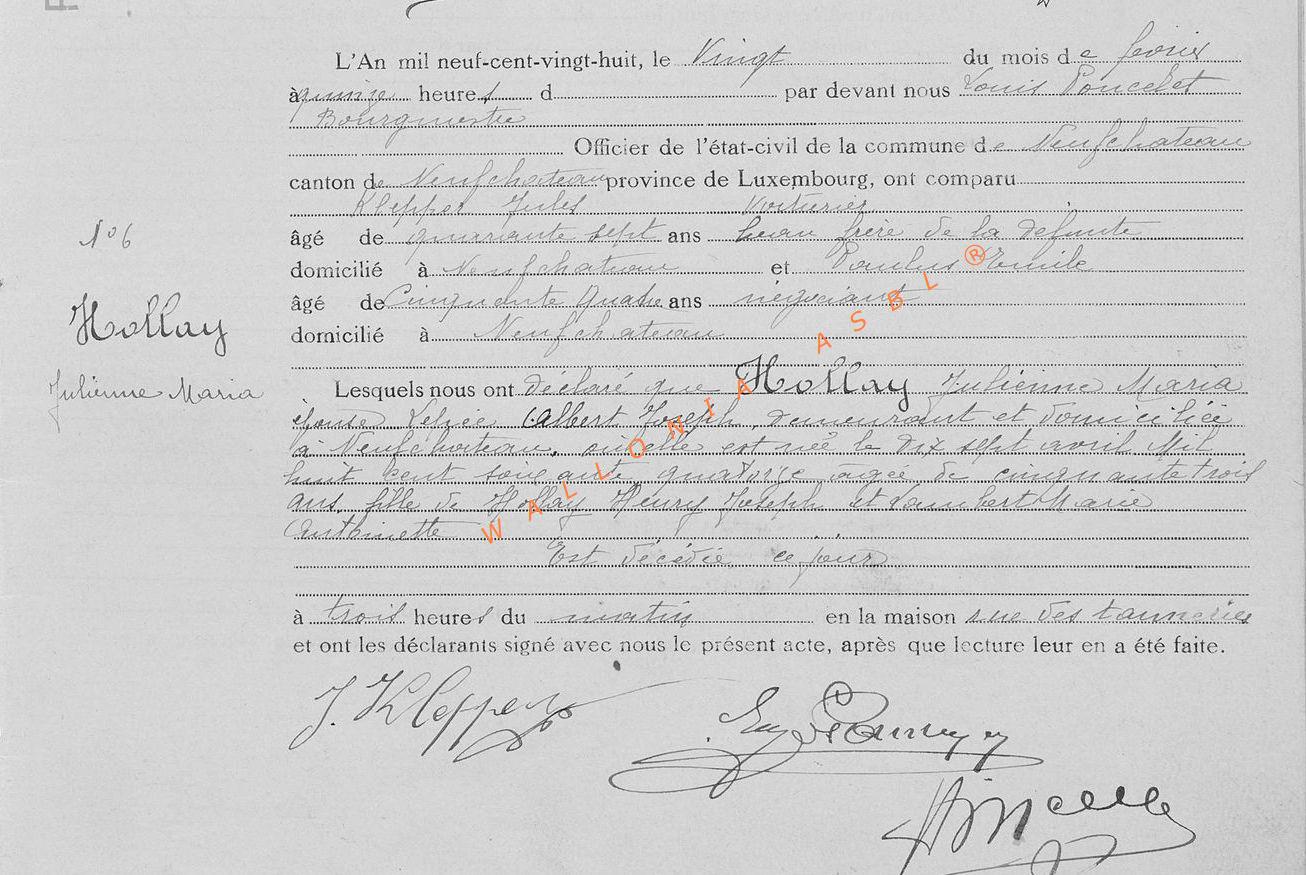 L'An mil neuf-cent-vingt-huit, le Vingt du mois de fevrier
à quinze heures d par devant nous Louis Poncelet
Bourgmestre
Officier de l'état-civil de la commune de Neufchateau
canton de Neufchateau province de Luxembourg, ont comparu
Klepper Jules Voiturier
âgé de quarante sept ans beau frère de la defunte
domicilié à Neufchateau et Paulus Emile
âgé de Cinquante quatre ans négociant
domicilié à Neufchateau
N°6
Hollay
Julienne Maria
Lesquels nous ont déclaré que Hollay Julienne Maria
épouse Albert Joseph, demeurant et domiciliée
à Neufchateau, où elle est née le dix sept avril Mil
huit cent soixante quatorze agée de cinquante trois
ans, fille de Hollay Henry Joseph et Lambert Marie
Antoinette
Est décédée ce jour
à trois heures du matin en la maison rue des tanneries
et ont les déclarants signé avec nous le présent acte, après que lecture leur en a été faite.
J. Klepper
WALLONIA ASBL ®